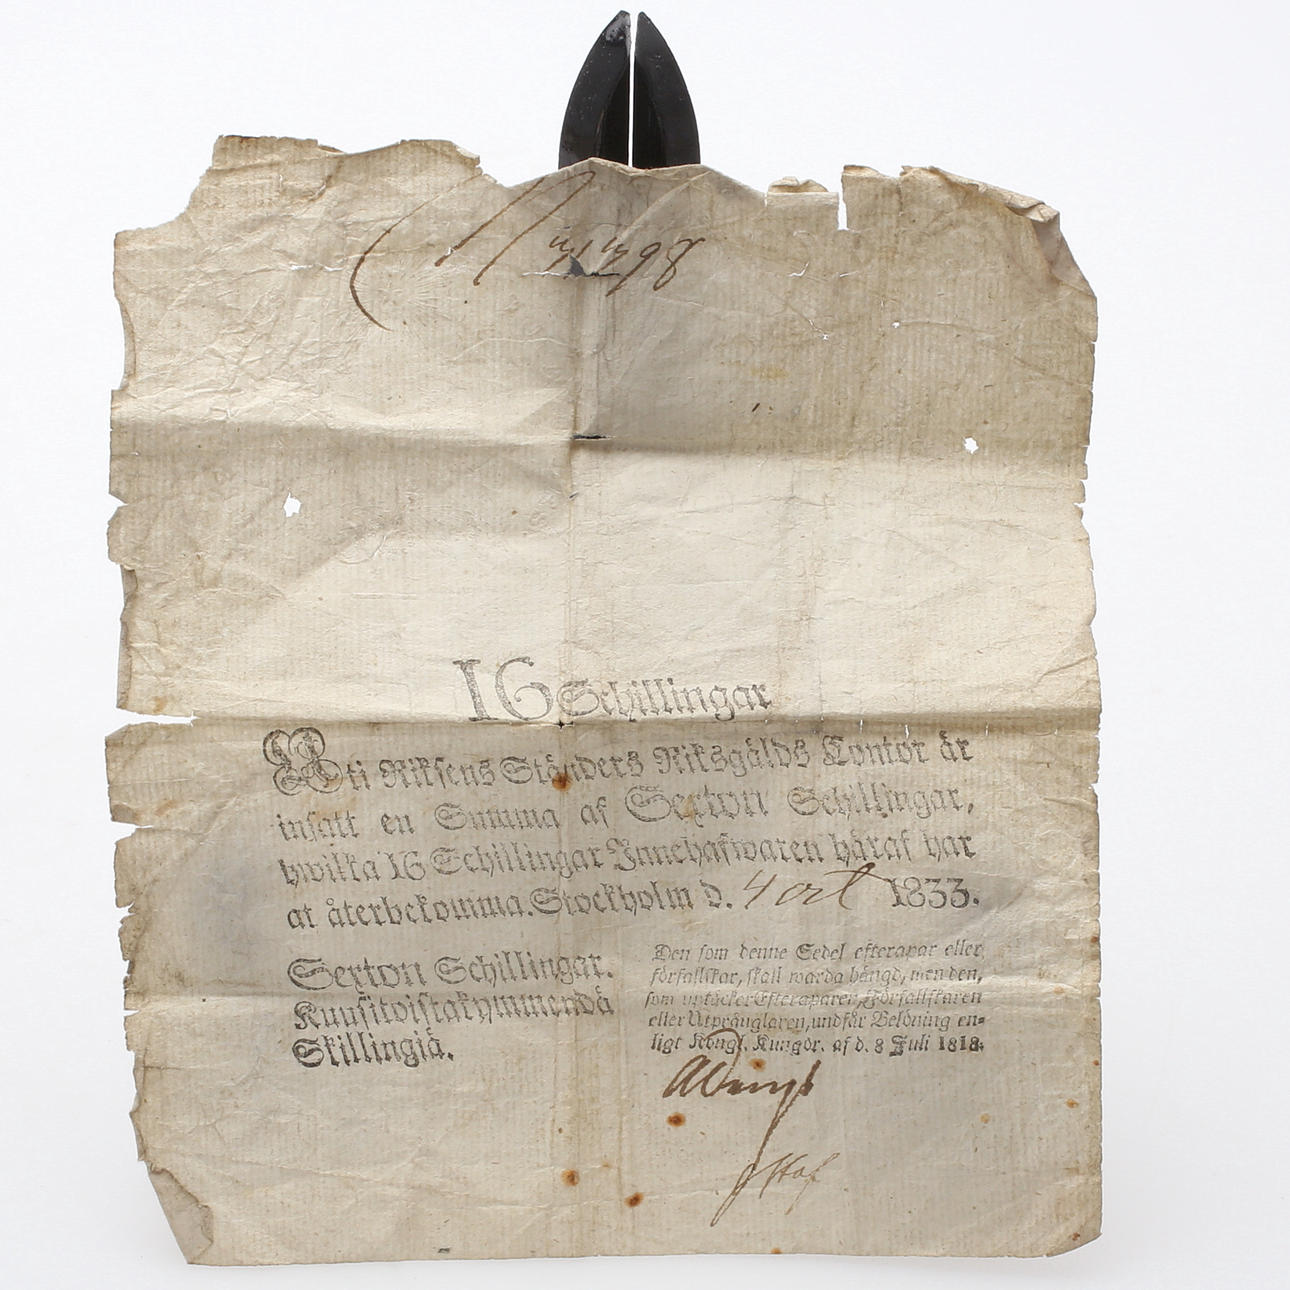 16 Schillingar
Uti Riksens Ständers Riksgälds Contor är
insatt en Summa af Sexton Schillingar,
hwilka 16 Schillingar Innehafwaren häraf har
at återbekomma. Stockholm d. 4 oct 1833.
Sexton Schillingar.
Kuusitoistakymmendä
Skillingiä.
Den som denne Sedel efterapar eller
förfalskar, skall warda hängd, men den,
som uptäcker Efteraparen, Förfalskaren
eller Utprånglaren, undfår Belöning en=
ligt Kongl. Kungör. af d. 8 Juli 1818.